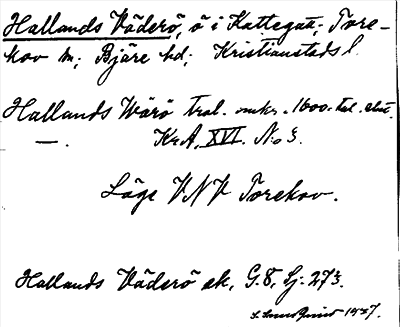 Hallands Väderö, ö i Kattegatt; Tore-
kov sn; Bjäre hd; Kristianstads l.
Hallands Wärö trol. omkr. 1600-tal. slut.
—. KrA, XVI. No 3.
Läge VNV Torekov.
Hallands Väderö ek, G.8, Lj: 273.
1927.